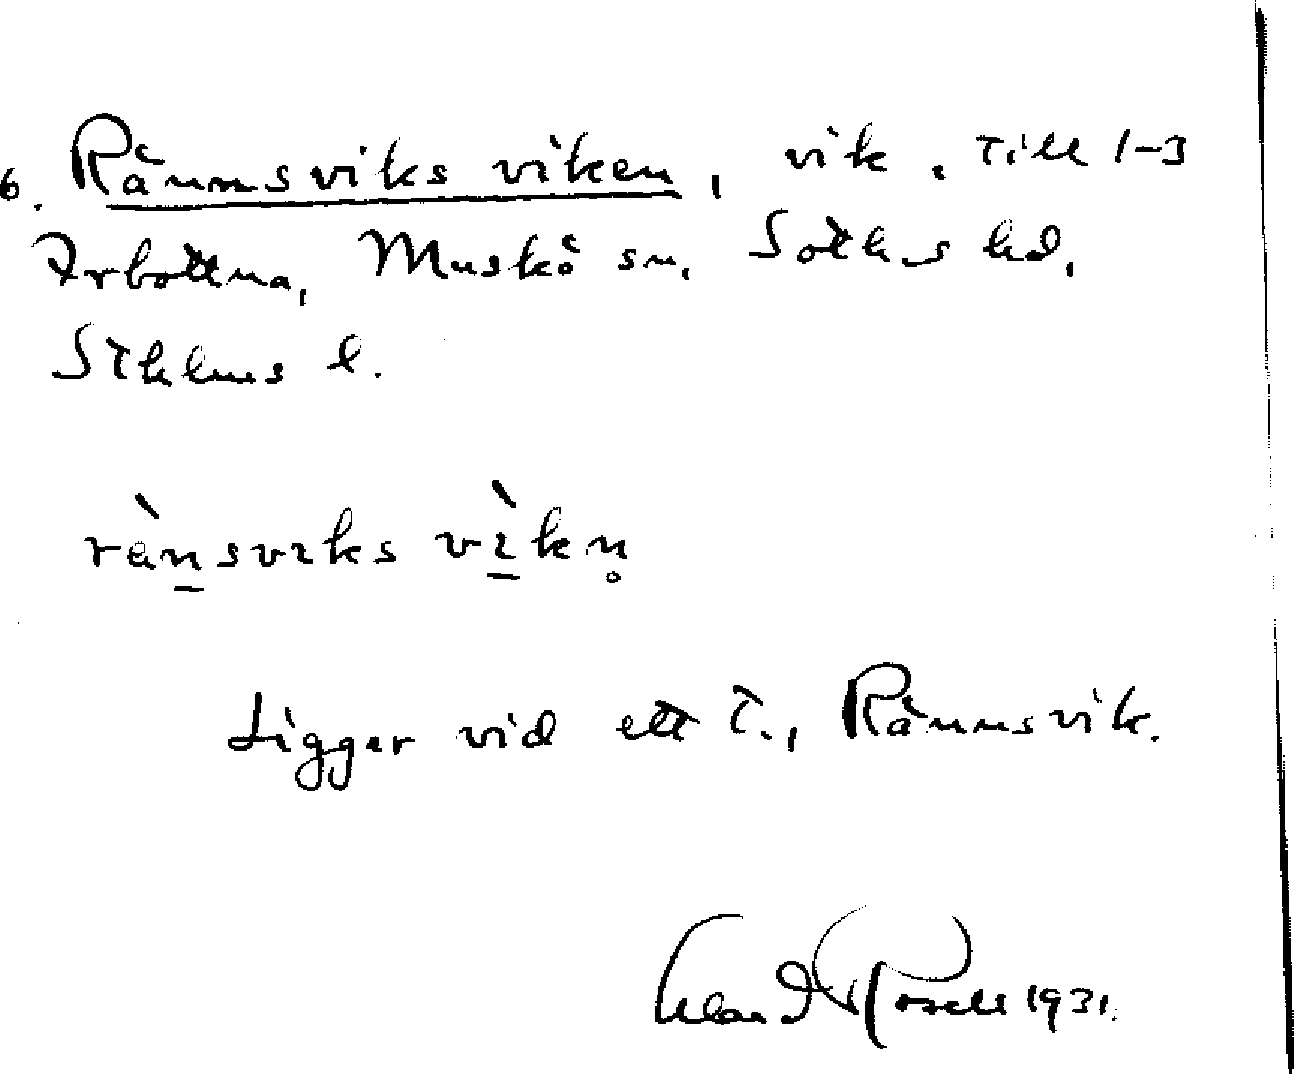 6. Rännsviks viken, vik, till 1-3
Arbottna, Muskö sn, Soth-s hd,
Sthlms l.
rànsviks vìkn̥
Ligger vid ett t., Rännsvik.
Rosell 1931.